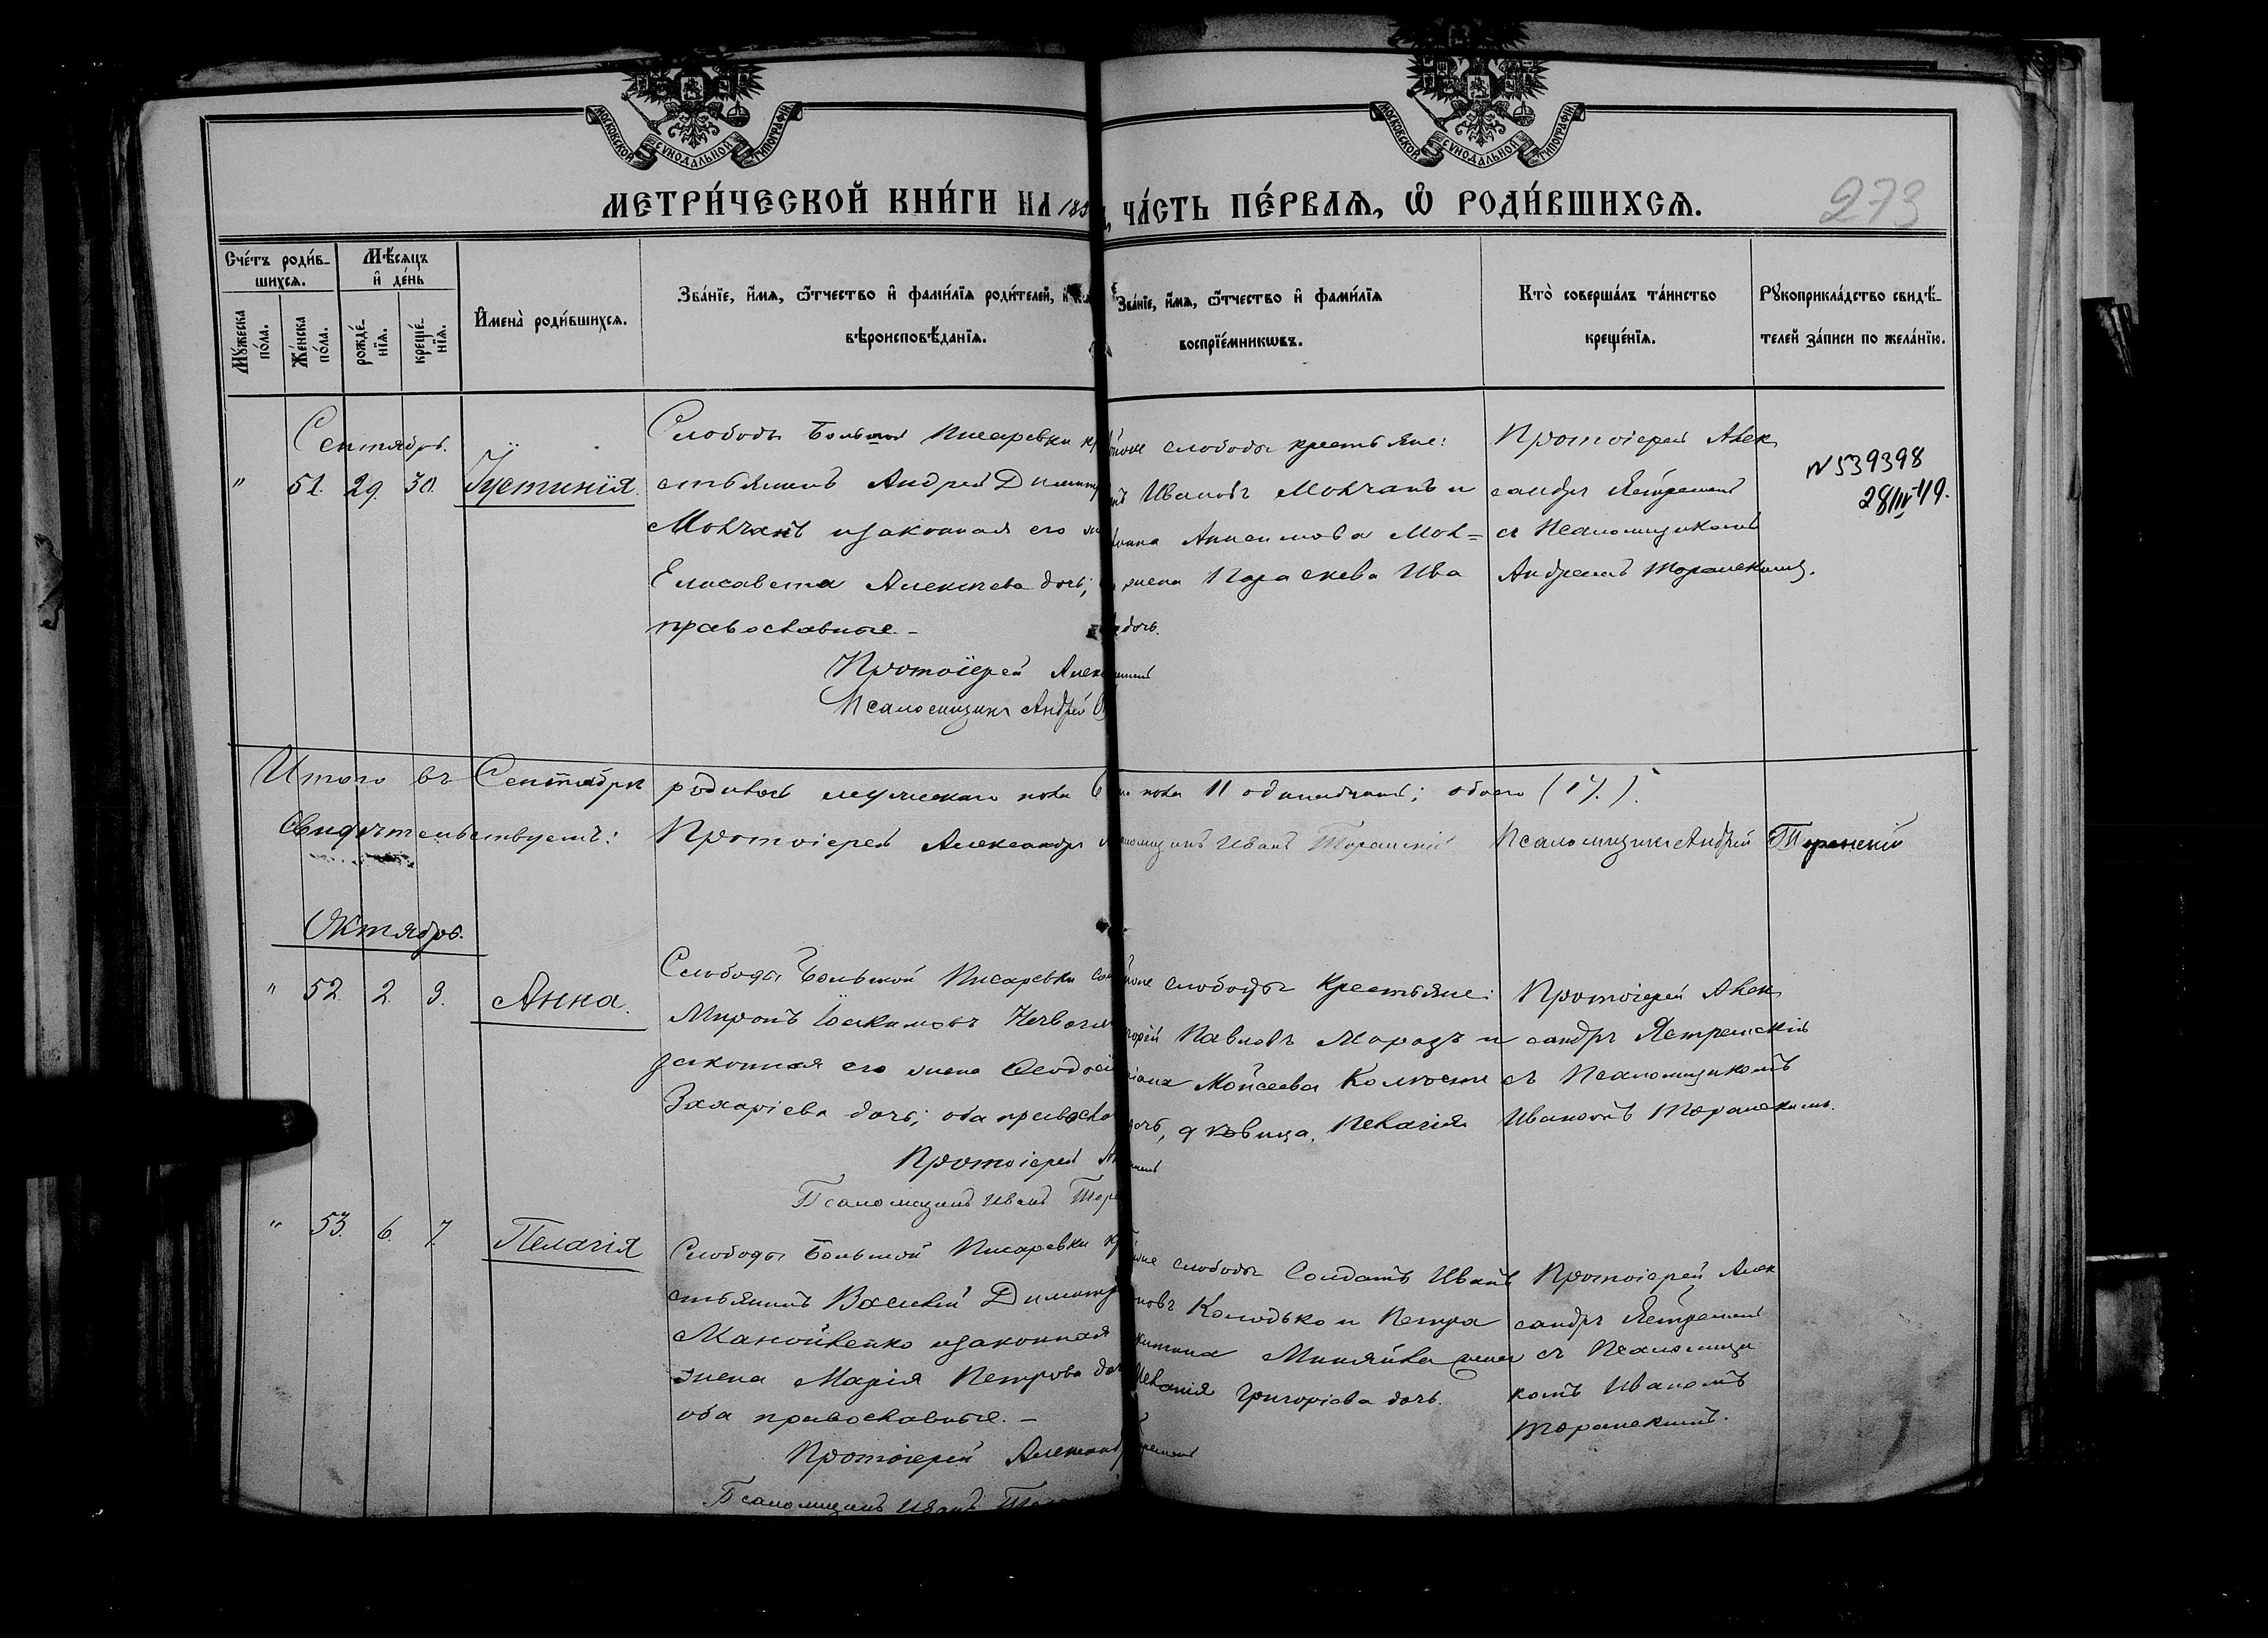 МОСКОВСКОЙ СѴНОДАЛЬНОЙ ТИПОГРАФІИ
МОСКОВСКОЙ СѴНОДАЛЬНОЙ ТИПОГРАФІИ
МЕТРИ́ЧЕСКОЙ КНИ́ГИ НА 188
ЧА́СТЬ ПЕ́РВАѦ, Ѡ҆ РОДИ́ВШИХСѦ.
273
Сче́тъ роди́в-
шихсѧ.
Мѣ́сѧцъ
и҆ де́нь
Мꙋ́жеска по́ла.
Же́нска по́ла.
рожде́-нїѧ.
креще́-нїѧ.
И҆мена̀ роди́вшихсѧ.
Зва́нїе, и҆́мѧ, ѻ҆́тчество и҆ фами́лїѧ роди́телей,
вѣроисповѣ́данїѧ.
Зва́нїе, и҆́мѧ, ѻ҆́тчество и҆ фами́лїѧ
воспрїе́мникѡвъ.
Кто̀ соверша́лъ та́инство
креще́нїѧ.
Рꙋкоприкла́дство свидѣ́-
телей за́писи по жела́нїю.
Сентябрь.
" 51. 29. 30. Іустинія.
Слободы Большой Писаревки кр
стьянинъ Андрей Димитр
Молчанъ и законная его
Елисавета Алексѣева дочь;
православные. –
Протоіерей Алек
Псаломщикъ Андрей
слободы крестьяне:
Ивановъ Молчанъ и
Анисимова Мол=
жена Параскева Ива
дочь.
Протоіерей Алек
сандръ Ястремскій
съ Псаломщикомъ
Андреемъ Торанскимъ.
N 539398
28/IV 49.
Итого въ Сентябрѣ родилось мужеска пола 6
пола 11 одинадцать; обоего (17.).
Свидѣтельствуемъ: Протоіерей Александръ
Иванъ Торанскій Псаломщикъ Андрей Торанскій
Октябрь.
" 52. 2. 3. Анна.
Слободы Большой Писаревки сол
Миронъ Іоакимовъ
законная его жена Ѳеодосі
Захаріева дочь; оба правосла
Протоіерей
Псаломщикъ Иванъ Тора
слободы Крестьяне:
Павловъ Морозъ и
Мойсеева
дочь, дѣвица, Пелагія
Протоіерей Алек
сандръ Ястремскій
съ Псаломщикомъ
Иваномъ Торанскимъ.
" 53. 6. 7. Пелагія
Слободы Большой Писаревки кр
стьянинъ Василій Димитр
Манойленко и законная
жена Марія Петрова до
оба православные. –
Протоіерей Александ
Псаломщикъ Иванъ
слободы Солдатъ Иванъ
Колодько и Петра
Миняйла жена
Григоріева дочь.
Протоіерей Алек
сандръ Ястремскій
съ Псаломщи
комъ Иваномъ
Торанскимъ.